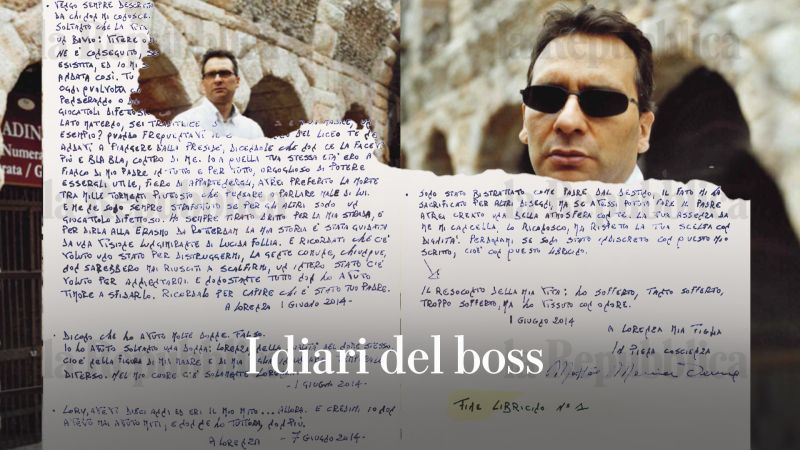 VENGO SEMPRE DESCRITTO
DA CHI NON MI CONOSCE.
SOLTANTO CHE LA VITA
UN BIVIO: VIVERE O
NE È CONSEGUITO, SE
ESISTITA, ED IO MI
ANDATA COSÌ. TU
OGNI QUALVOLTA
PENSERANNO
GIOCATTOLI DIFETTOSI
LATO MATERNO, SEI TRADITRICE
ESEMPIO? QUANDO FREQUENTAVI IL DEL LICEO TE NE
ANDAVI A PIANGERE DALLA PRESIDE, DICENDOLE CHE NON CE LA FACEVI
PIÙ E BLA BLA, CONTRO DI ME. IO A QUELLA TUA STESSA ETÀ ERO A
FIANCO DI MIO PADRE IN TUTTO E PER TUTTO, ORGOGLIOSO DI POTERE
ESSERGLI UTILE, FIERO DI APPARTENERGLI, AVREI PREFERITO LA MORTE
TRA MILLE TORMENTI PIUTTOSTO CHE PENSARE O PARLARE MALE DI LUI.
E ME NE SONO SEMPRE STRAFOTTUTO SE PER GLI ALTRI SONO UN
GIOCATTOLO DIFETTOSO. HO SEMPRE TIRATO DRITTO PER LA MIA STRADA, E
PER DIRLA ALLA ERASMO DA ROTTERDAM LA MIA STORIA È STATA GUIDATA
DA UNA VISIONE LUNGIMIRANTE DI LUCIDA FOLLIA. E RICORDATI CHE C'È
VOLUTO UNO STATO PER DISTRUGGERMI, LA GENTE COMUNE, CHIUNQUE,
NON SAREBBERO MAI RIUSCITI A SCALFIRMI, UN INTERO STATO C'È
VOLUTO PER ANNIENTARMI. E NONOSTANTE TUTTO NON HO AVUTO
TIMORE A SFIDARLO. RICORDALO PER CAPIRE CHI È STATO TUO PADRE.
A LORENZA 1 GIUGNO 2014-
DICONO CHE HO AVUTO MOLTE DONNE. FALSO.
IO HO AVUTO SOLTANTO UNA DONNA: LORENZA
CIOÈ NELLA FIGURA DI MIA MADRE E DI MIA
DIVERSO. NEL MIO CUORE C'È SOLAMENTE
- 1 GIUGNO 2014-
LORY, AVEVI DIECI ANNI ED ERI IL MIO MITO... ALLORA. E CREDIMI IO NON
AVEVO MAI AVUTO MITI, E NON NE HO TUTTORA, NON PIÙ.
A LORENZA - 7 GIUGNO 2014-
ADIN
Numera
rata / G
SONO STATO BISTRATTATO COME PADRE DAL DESTINO, IL FATO MI HA
SACRIFICATO PER ALTRI DISEGNI, MA SE AVESSI POTUTO FARE IL PADRE
AVREI CREATO UNA BELLA ATMOSFERA CON TE. LA TUA ASSENZA DA
ME MI CANCELLA, LO RICONOSCO, MA RISPETTO LA TUA SCELTA CON
DIGNITÀ. PERDONAMI SE SONO STATO INDISCRETO CON QUESTO MIO
SCRITTO, CIOÈ CON QUESTO LIBRICINO.
IL RESOCONTO DELLA MIA VITA: HO SOFFERTO, TANTO SOFFERTO,
TROPPO SOFFERTO, MA HO VISSUTO CON ONORE.
1 GIUGNO 2014
A LORENZA MIA FIGLIA
IN PIENA COSCIENZA
FINE LIBRICINO Nº 1
I diari del boss
la Repubblica